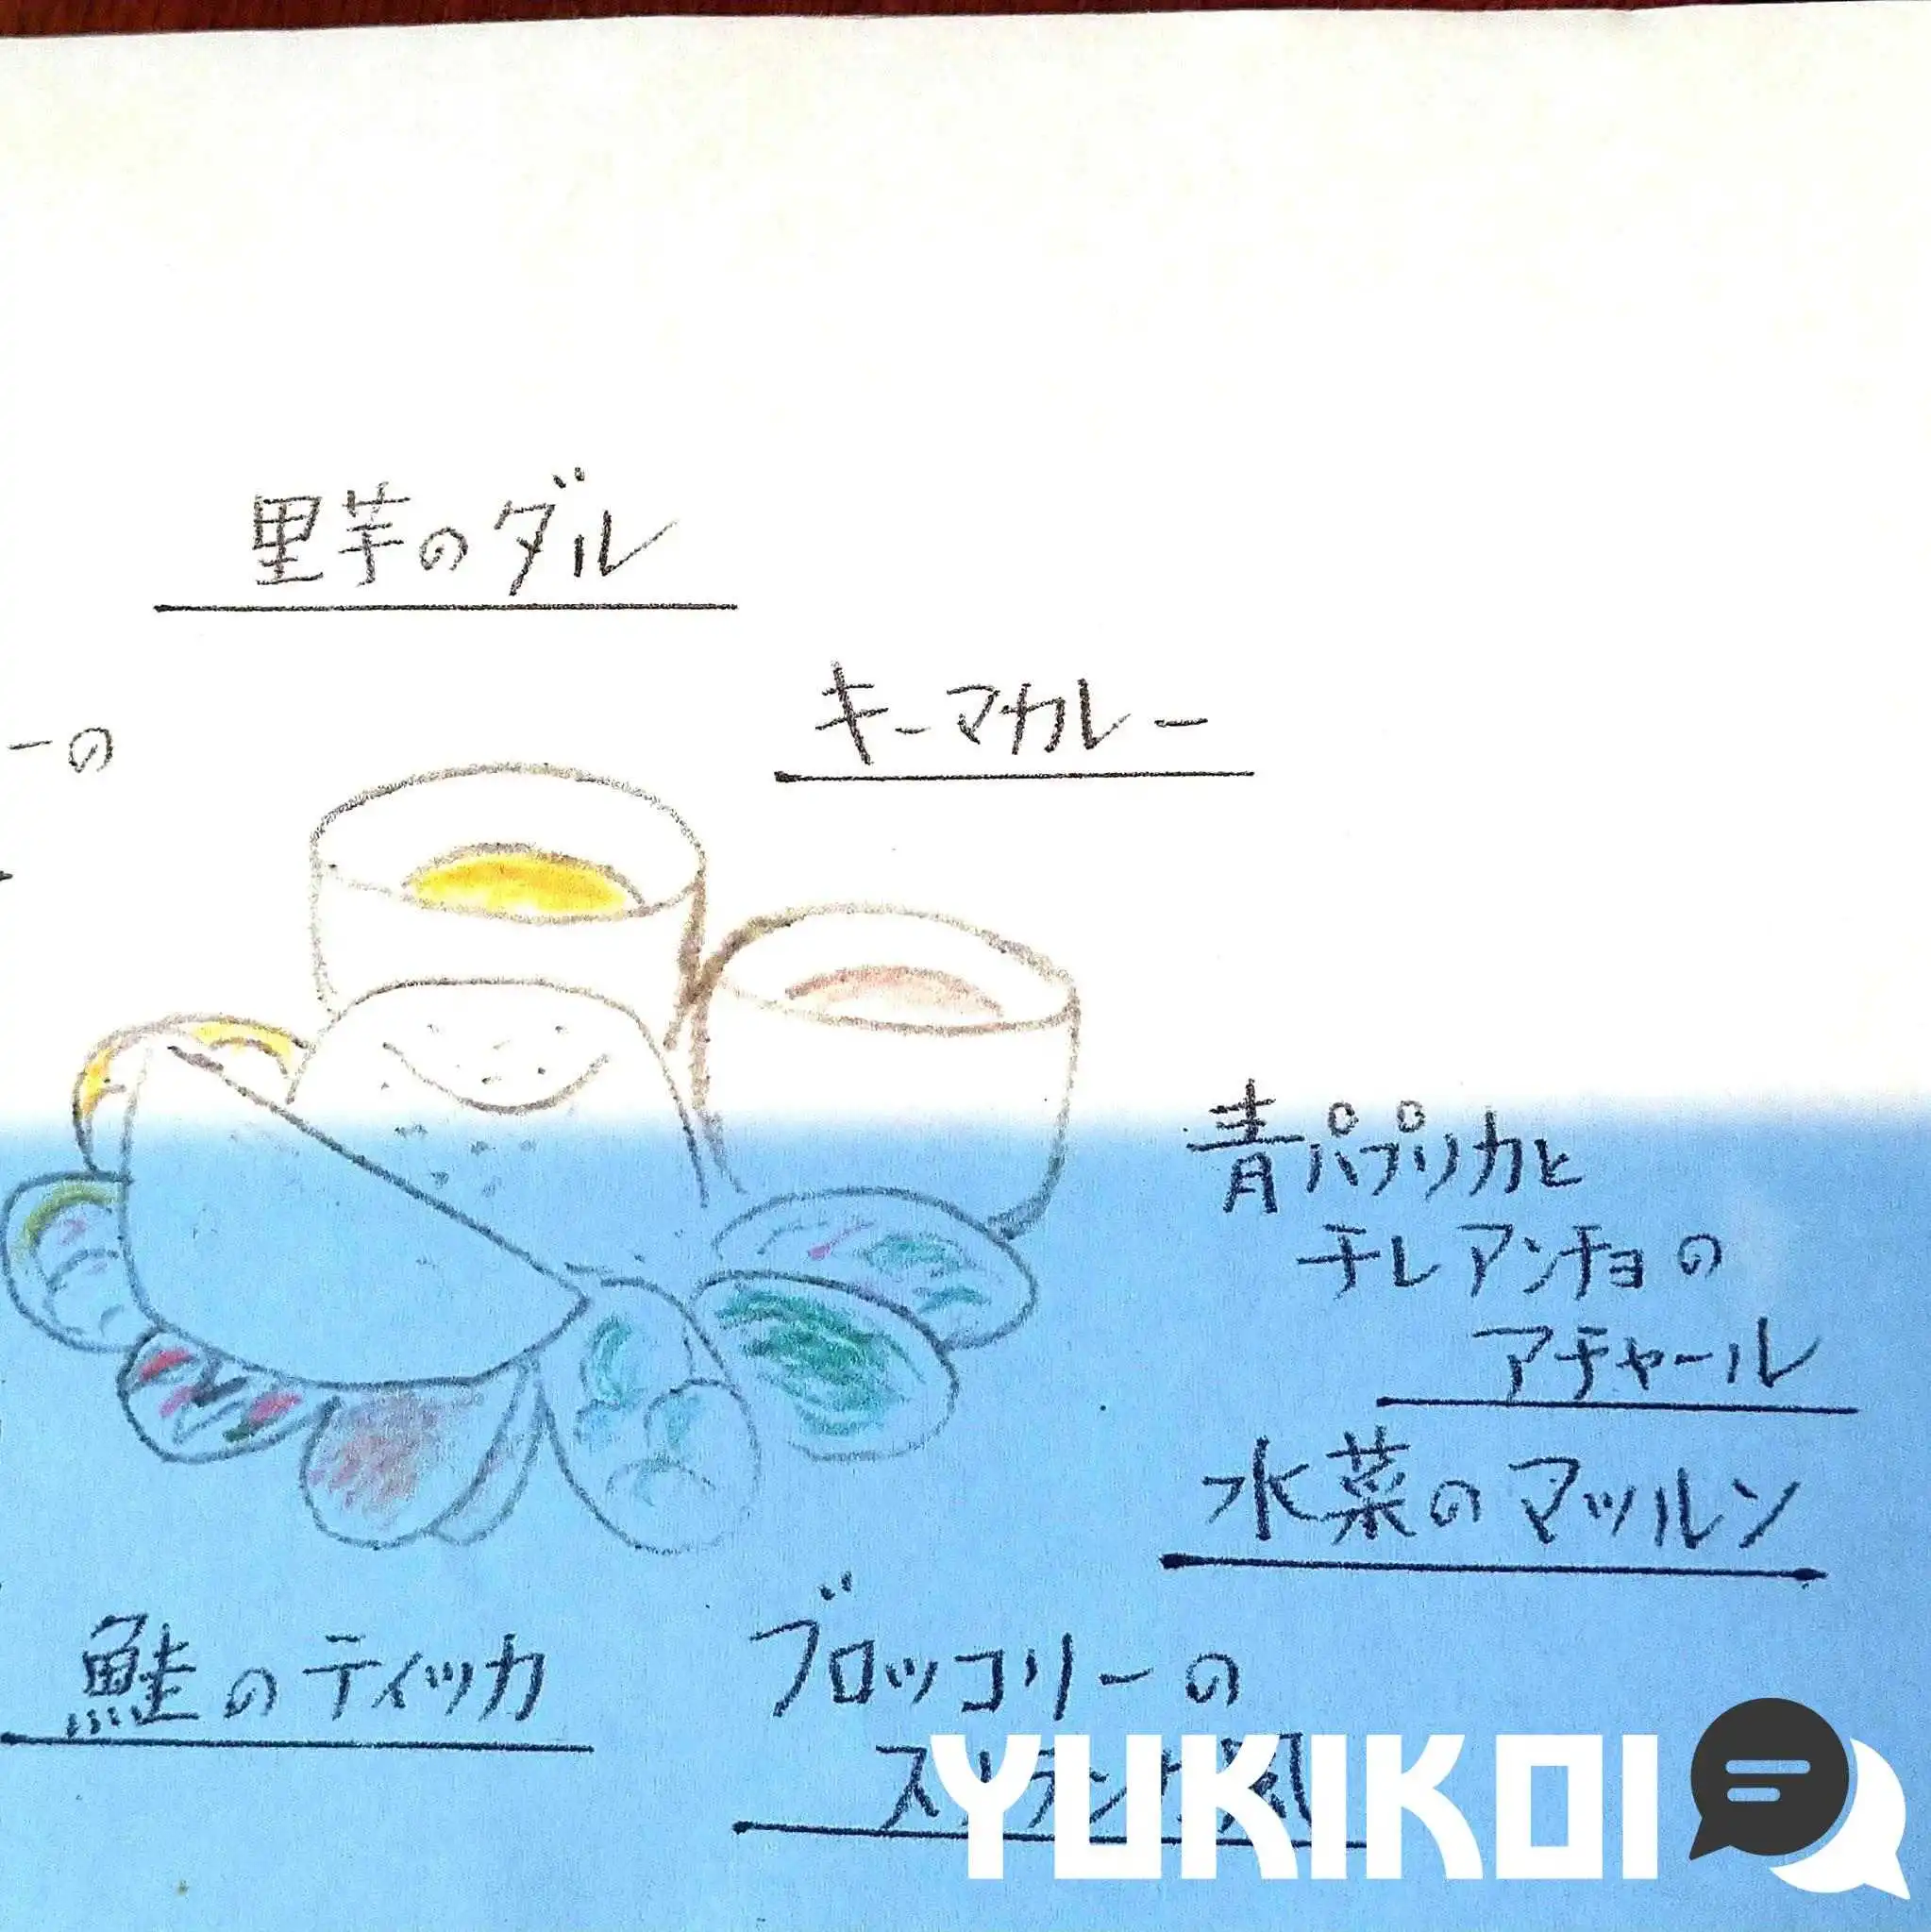 里芋のダル
キーマカレー
ーの
青パプリカと
チレアンチョの
アチャール
水菜のマッルン
鮭のティッカ
ブロッコリーの
YUKIKOI